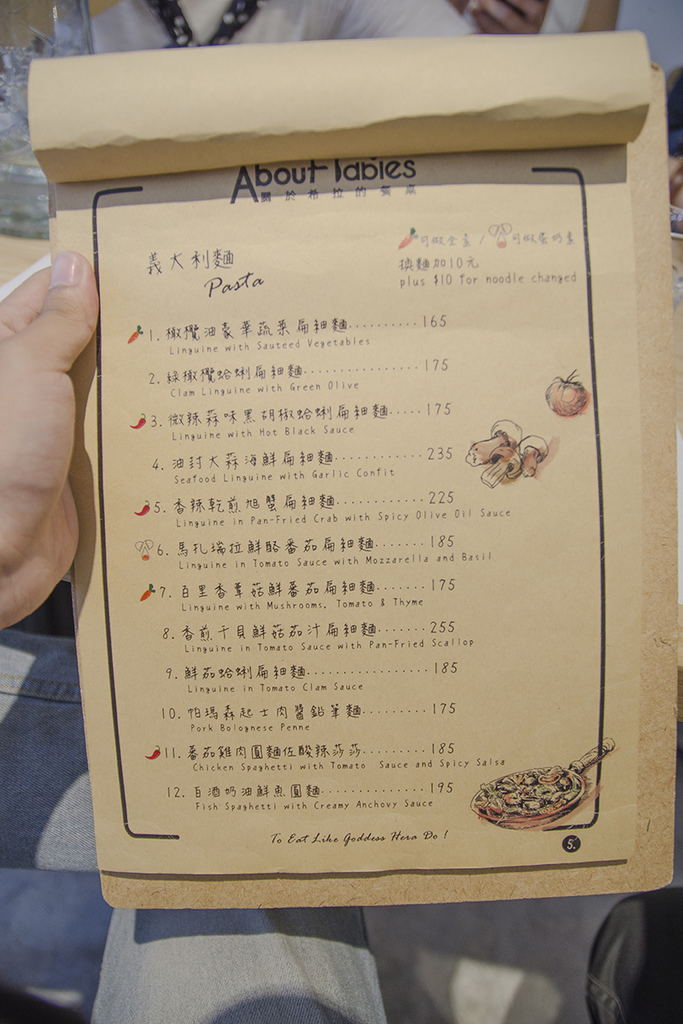 About Tables
關於希拉的餐桌
可做全素 / 可做蛋奶素
義大利麵
Pasta
換麵加10元
plus $10 for noodle changed
1. 橄欖油豪華蔬菜扁細麵.......... 165
Linguine with Sauteed Vegetables
2. 綠橄欖蛤蜊扁細麵................ 175
Clam Linguine with Green Olive
3. 微辣蒜味黑胡椒蛤蜊扁細麵..... 175
Linguine with Hot Black Sauce
4. 油封大蒜海鮮扁細麵............. 235
Seafood Linguine with Garlic Confit
5. 香辣乾煎旭蟹扁細麵............ 225
Linguine in Pan-Fried Crab with Spicy Olive Oil Sauce
6. 馬扎瑞拉鮮酪番茄扁細麵....... 185
Linguine in Tomato Sauce with Mozzarella and Basil
7. 百里香蕈菇鮮番茄扁細麵....... 175
Linguine with Mushrooms, Tomato & Thyme
8. 香煎干貝鮮菇茄汁扁細麵....... 255
Linguine in Tomato Sauce with Pan-Fried Scallop
9. 鮮茄蛤蜊扁細麵.................. 185
Linguine in Tomato Clam Sauce
10. 帕瑪森起士肉醬鉛筆麵......... 175
Pork Bolognese Penne
11. 番茄雞肉圓麵佐酸辣莎莎......... 185
Chicken Spaghetti with Tomato Sauce and Spicy Salsa
12. 白酒奶油鮮魚圓麵............... 195
Fish Spaghetti with Creamy Anchovy Sauce
To Eat Like Goddess Hera Do !
5.